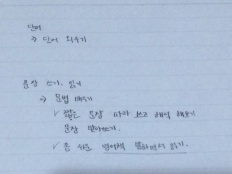 단어
→ 단어 외우기
문장 쓰기, 읽기
→ 문법 배우기
✓ 짧은 문장 따라 쓰고 해석 해보기
문장 받아쓰기.
✓ 좀 쉬운 영어책 읽기.